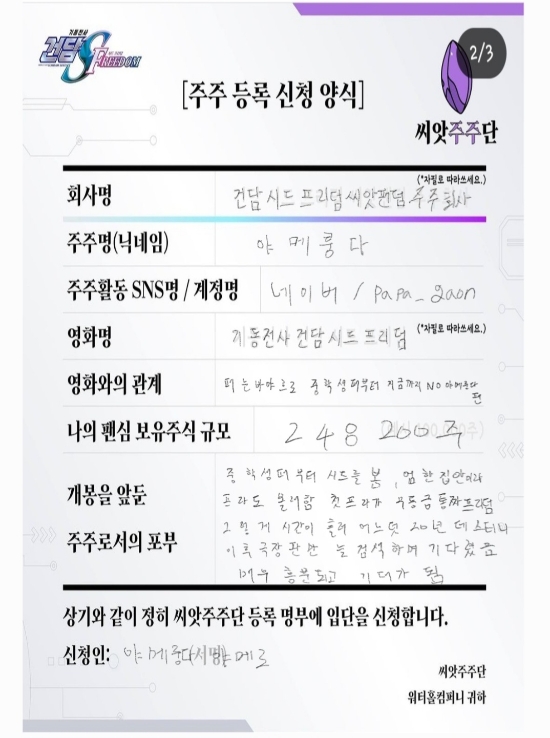 기동전사
건담
SEED FREEDOM
2/3
[주주 등록 신청 양식]
씨앗주주단
(*자필로 따라쓰세요.)
회사명 건담 시드 프리덤 씨앗팬덤 주주회사
주주명(닉네임) 야 메 룽 다
주주활동 SNS명 / 계정명 네이버 / papa_gaon
(*자필로 따라쓰세요.)
영화명 기동전사 건담 시드 프리덤
영화와의 관계 때는 바야흐로 중학생때부터 지금까지 NO 야메룽다
편
나의 팬심 보유주식 규모 248200주
개봉을 앞둔
주주로서의 포부
중학생때부터 시드를 봄, 엄한 집안이라
프라도 몰래함 첫프라가 무등급 통짜 프리덤
그렇게 시간이 흘러 어느덧 20년 데스티니
이후 극장판만 늘 검색하며 기다렸음
매우 흥분되고 기대가 됨
상기와 같이 정히 씨앗주주단 등록 명부에 입단을 신청합니다.
신청인: 야메룽다 (서명) 야메로
씨앗주주단
워터홀컴퍼니 귀하